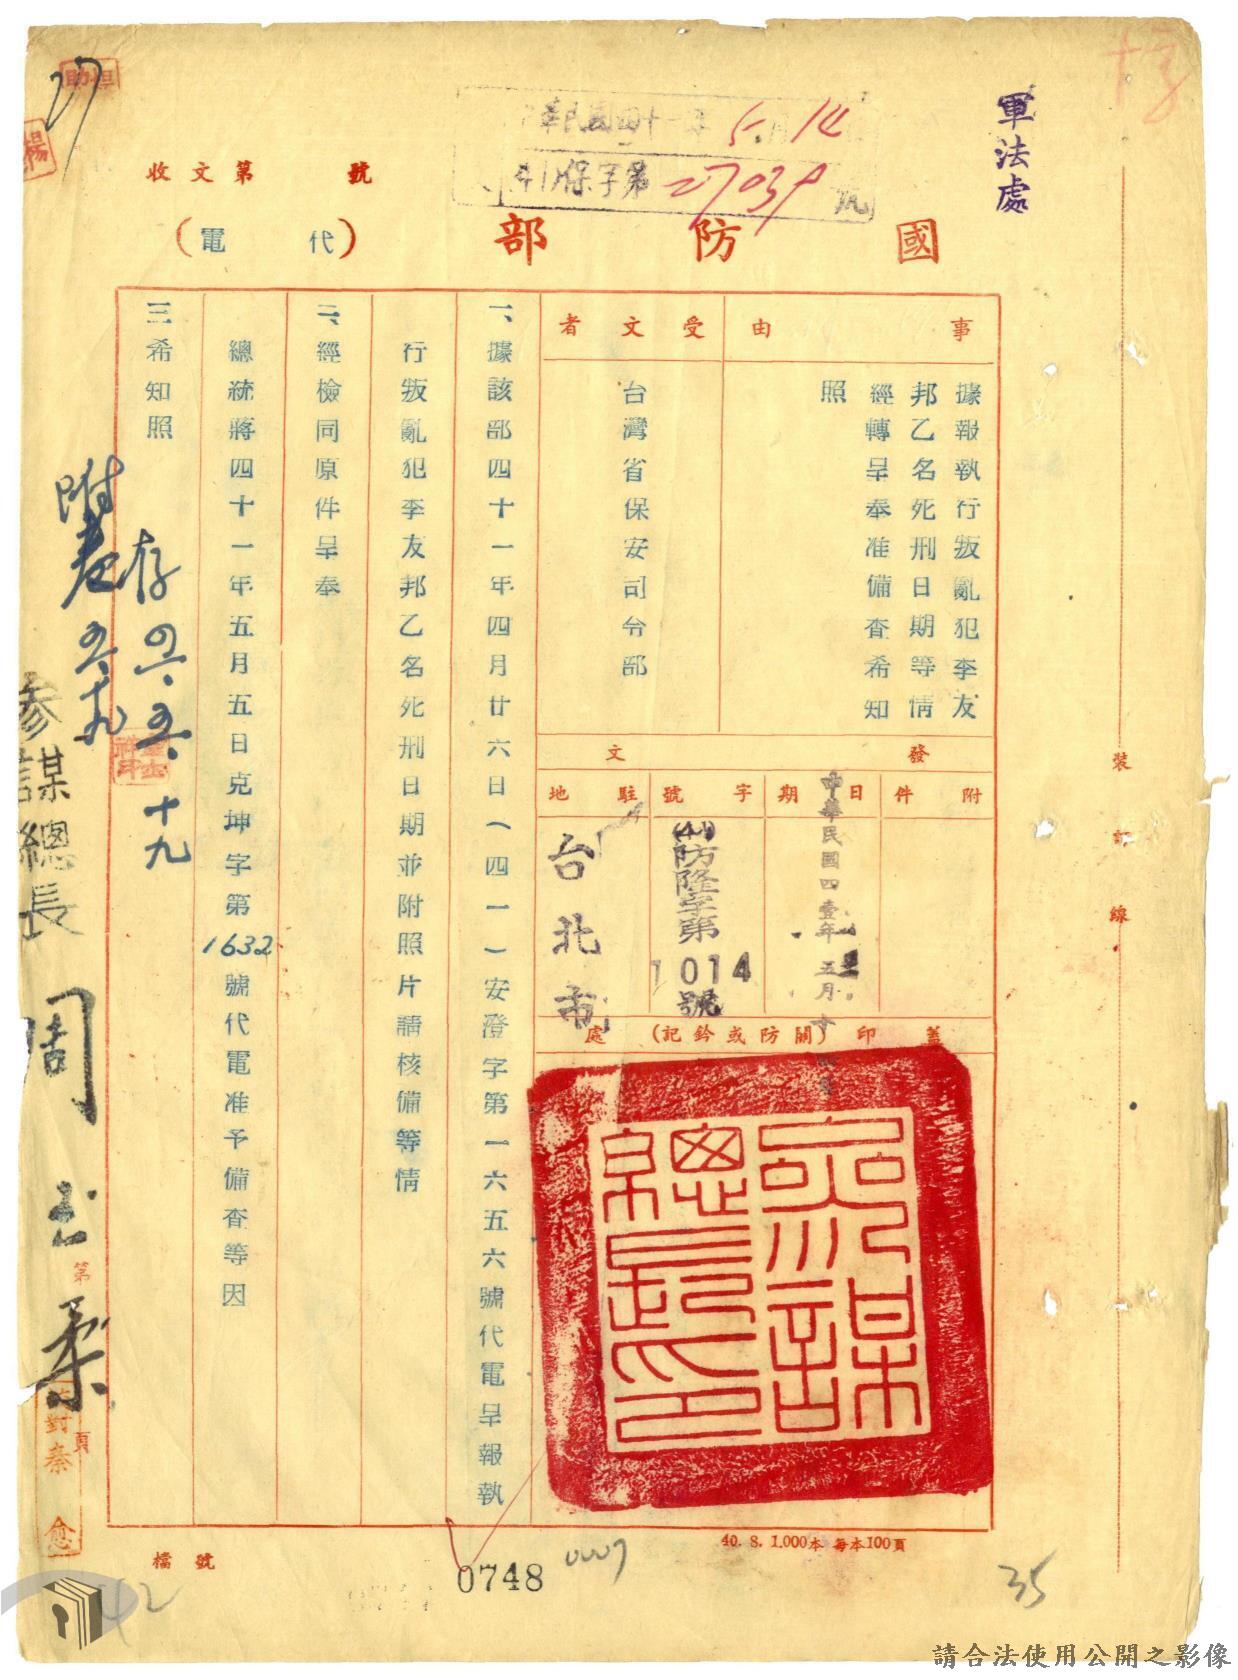 軍法處
華民國四十一年 5.14
41保字第27039
國防部(代電)
收文第 號
27
事由
據報執行叛亂犯李友
邦乙名死刑日期等情
經轉呈奉准備查希知
照
受文者
台灣省保安司令部
發文
附件
日期
中華民國四壹年五月十
字號
(41)防隆字第1014號
駐地
台北市
蓋印(關防或鈐記)處
參謀總長印
一、據該部四十一年四月廿六日(四一)安澄字第一六五六號代電呈報執
行叛亂犯李友邦乙名死刑日期並附照片請核備等情
二、經檢同原件呈奉
總統蔣四十一年五月五日克坤字第1632號代電准予備查等因
三希知照
存
十九
附卷
參謀總長 周至柔
第 頁
對秦愈
裝訂線
40. 8. 1.000本 每本100頁
檔號
0748
0007
35
42
請合法使用公開之影像